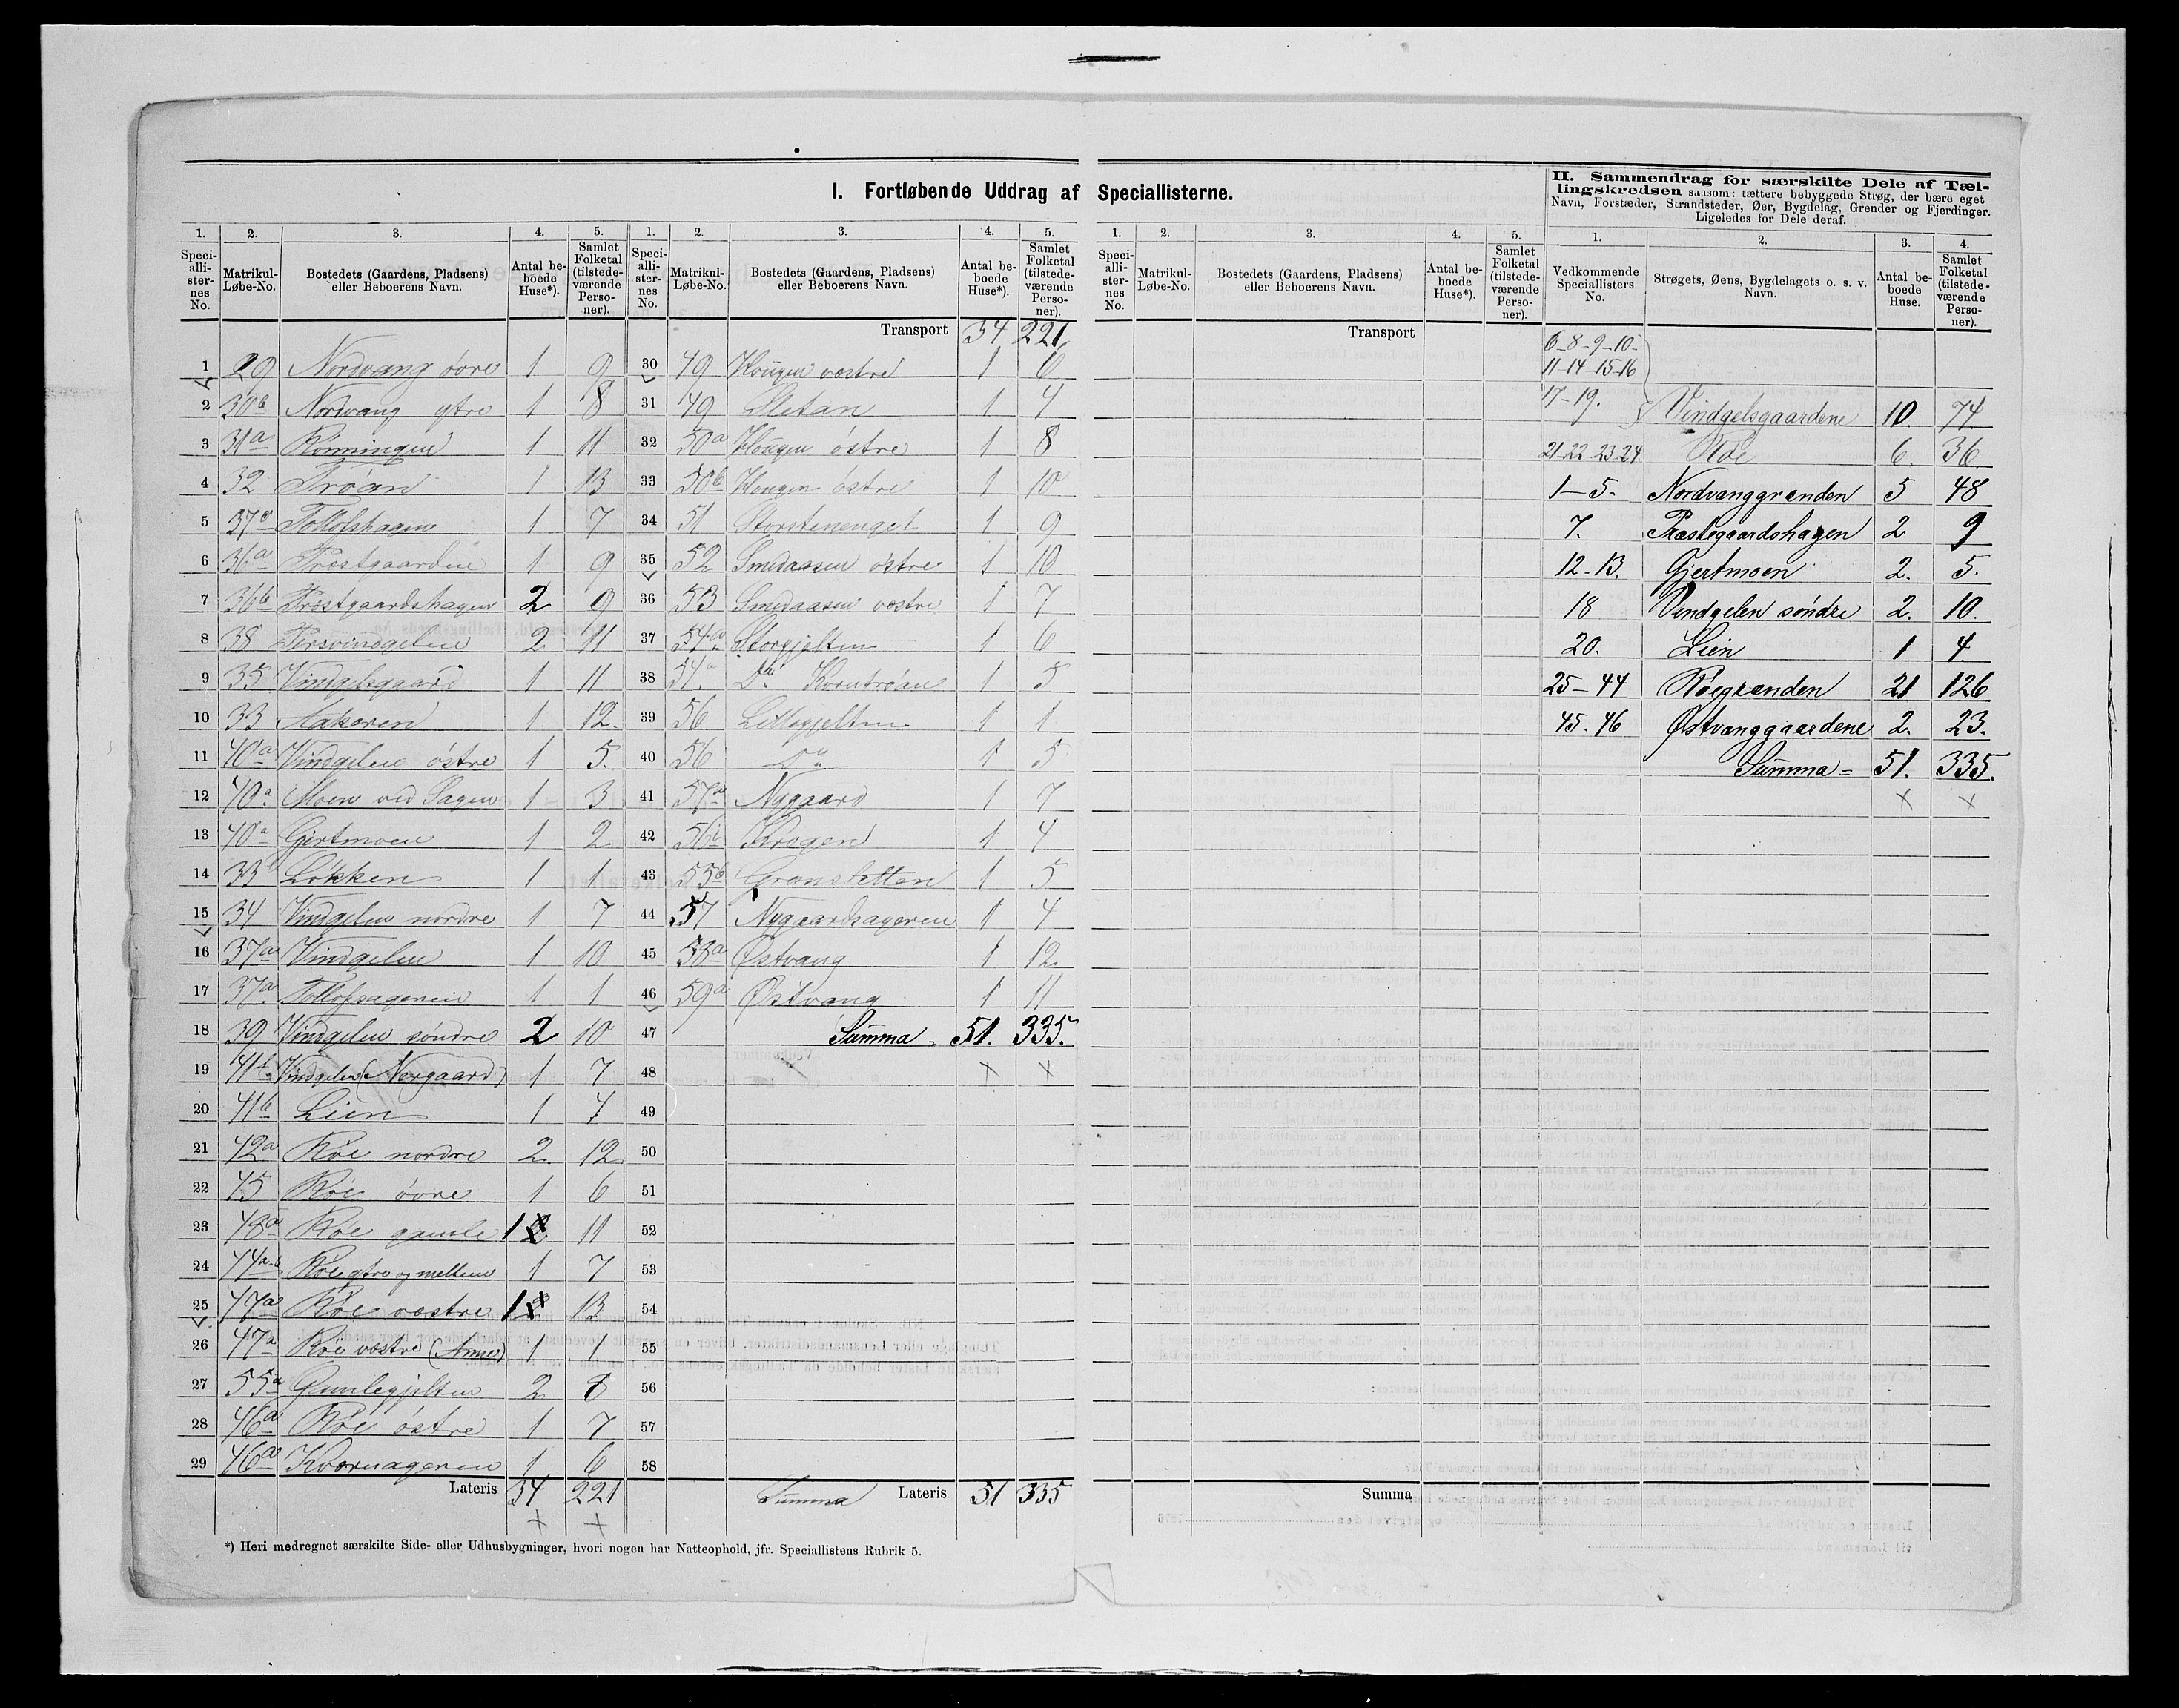 I. Fortløbende Uddrag af Speciallisterne.
1. 2. 3. 4. 5.
Speciallisternes No. Matrikul-Løbe-No. Bostedets (Gaardens, Pladsens) eller Beboerens Navn. Antal beboede Huse*). Samlet Folketal (tilstedeværende Personer).
1 29 Nordvang øvre 1 9
2 30b Nordvang ytre 1 8
3 31a Rønningen 1 11
4 32 Trøan 1 13
5 37 Tollofshagen 1 7
6 36a Præstgaarden 1 9
7 36b Præstgaardshagen 2 9
8 38 Persvindgelen 2 11
9 35 Vindgelsgaard 1 11
10 33 Aakeren 1 12.
11 40a Vindgelen østre 1 5.
12 40a Moen ved Sagen 1 3
13 40a Gjertmoen 1 2.
14 33 Løkken 1 1
15 34 Vindgelen nordre 1 7
16 37a Vindgelen 1 10
17 37a Tollofsageren 1 1
18 39 Vindgelen søndre 2 10
19 41 Vindgelen (Nergaard) 1 7
20 41b Lien 1 4
21 42a Røe nordre 2. 12
22 45 Røe øvre 1 6
23 48a Røe gamle 1 11
24 44a.b Røe ytre og mellem 1 7
25 47a Røe vestre 1 13
26 47a Røe vestre (Anne) 1 1
27 55a Gamlegjelten 2 8
28 46a Røe østre 1 7
29 46a Kvernageren 1 6
Lateris 34 221
1. 2. 3. 4. 5.
Speciallisternes No. Matrikul-Løbe-No. Bostedets (Gaardens, Pladsens) eller Beboerens Navn. Antal beboede Huse*). Samlet Folketal (tilstedeværende Personer).
Transport 34 221
30 49 Hougen vestre 1 6
31 49 Sletan 1 4
32 50a Hougen østre 1 8
33 50b Hougen østre 1 10
34 51 Storstenenget 1 9
35 52 Smedaasen østre 1 10
36 53 Smedaasen vestre 1 7
37 54a Storgjelten 1 6
38 54a Do Korntrøan 1 5
39 56 Lillegjelten 1 1
40 56 Do 1 5
41 57a Nygaard 1 7
42 56b Krogen 1 4
43 55b Grønsletten 1 5
44 57 Nygaardsageren 1 4
45 58a Østvang 1 12.
46 59a Østvang 1 11
47 Summa 51. 335.
48
49
50
51
52
53
54
55
56
57
58
Summa Lateris 51 335
*) Heri medregnet særskilte Side- eller Udhusbygninger, hvori nogen har Natteophold, jfr. Speciallistens Rubrik 5.
1. 2. 3. 4. 5.
Speciallisternes No. Matrikul-Løbe-No. Bostedets (Gaardens, Pladsens) eller Beboerens Navn. Antal beboede Huse*). Samlet Folketal (tilstedeværende Personer).
Transport
Summa
II. Sammendrag for særskilte Dele af Tællingskredsen saasom: tættere bebyggede Strøg, der bære eget Navn, Forstæder, Strandsteder, Øer, Bygdelag, Grender og Fjerdinger. Ligeledes for Dele deraf.
1. 2. 3. 4.
Vedkommende Speciallisters No. Strøgets, Øens, Bygdelagets o. s. v. Navn. Antal beboede Huse. Samlet Folketal (tilstedeværende Personer).
6-8-9-10-
11-14-15-16
17-19. Vindgelsgaardene 10 74
21-22-23-24 Røe 6. 36
1-5. Nordvanggrenden 5 48
7. Præstegaardshagen 2 9
12-13. Gjertmoen 2. 5.
18 Vindgelen søndre 2. 10.
20. Lien 1 4.
25-44 Røegrenden 21 126
45. 46 Østvanggaardene 2. 23.
Summa = 51. 335.